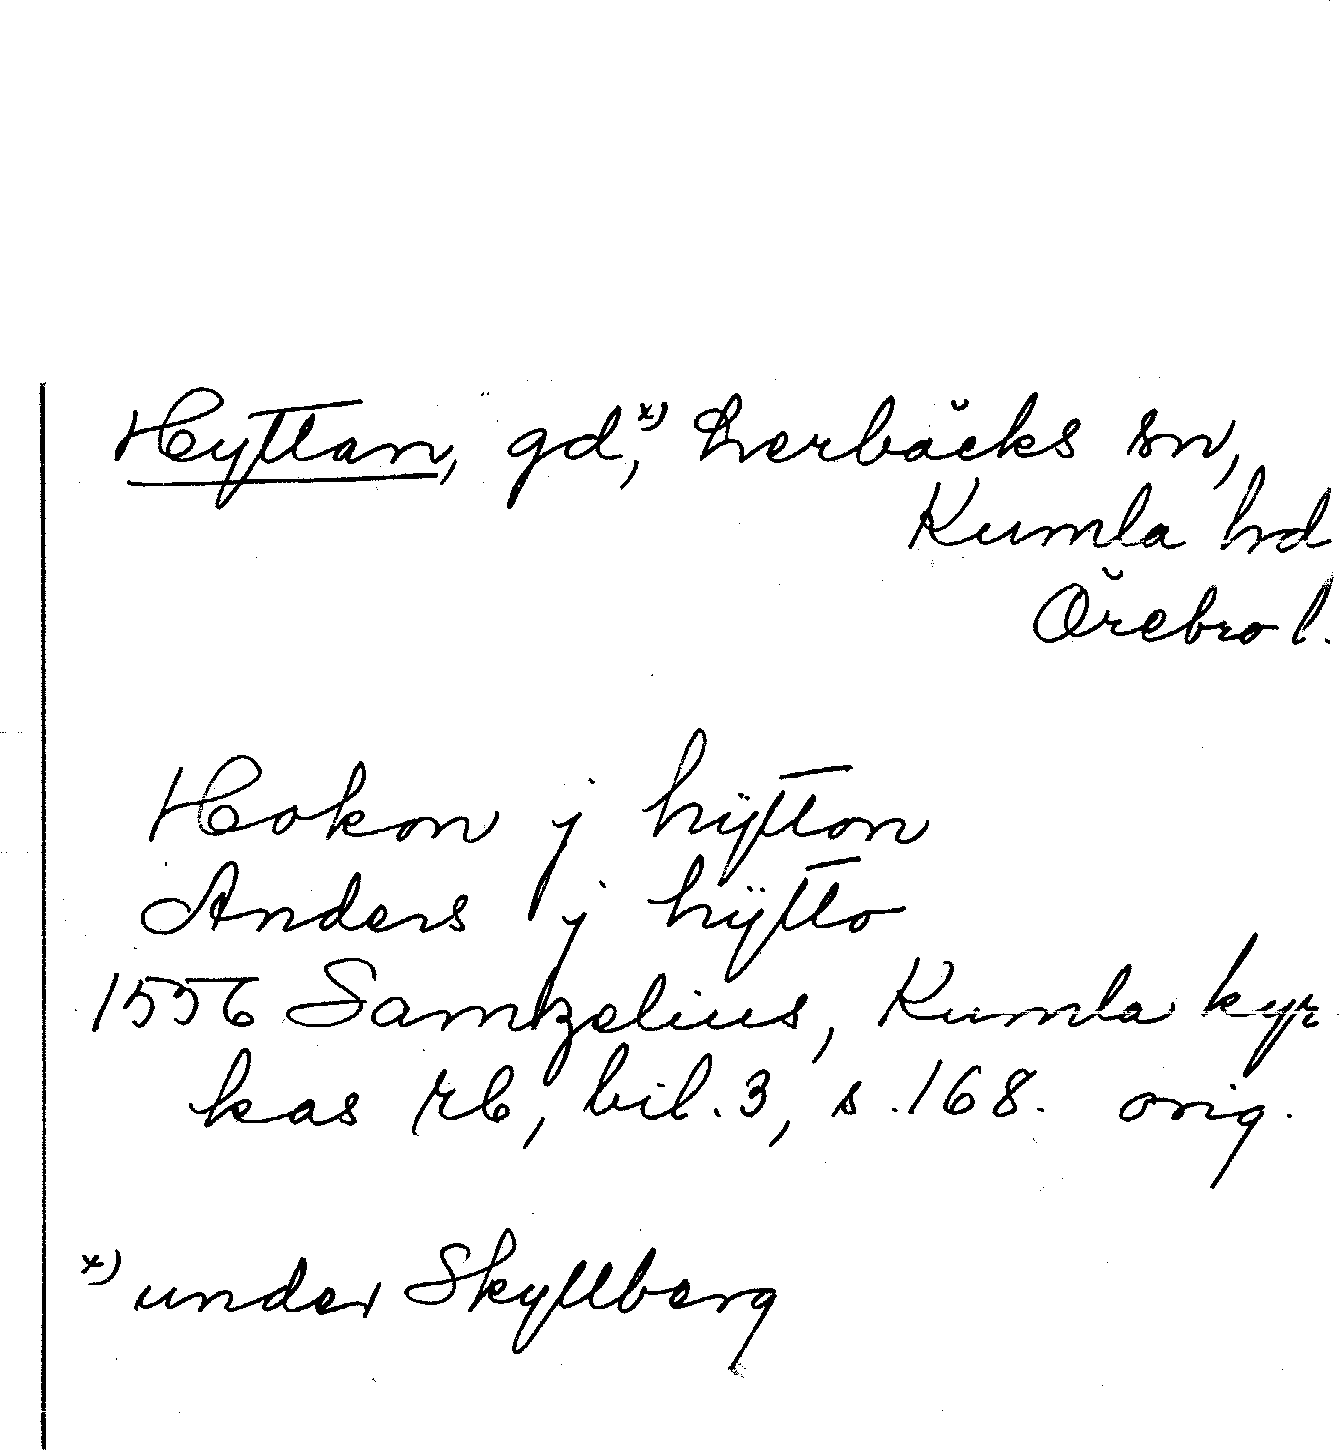 Hyttan, gd,*) Lerbäcks sn,
Kumla hd
Örebro l.
Hokon j hÿtton
Anders j hÿtto
1556 Samzelius, Kumla kyr
kas rb, bil. 3, s. 168. orig.
*) under Skyllberg